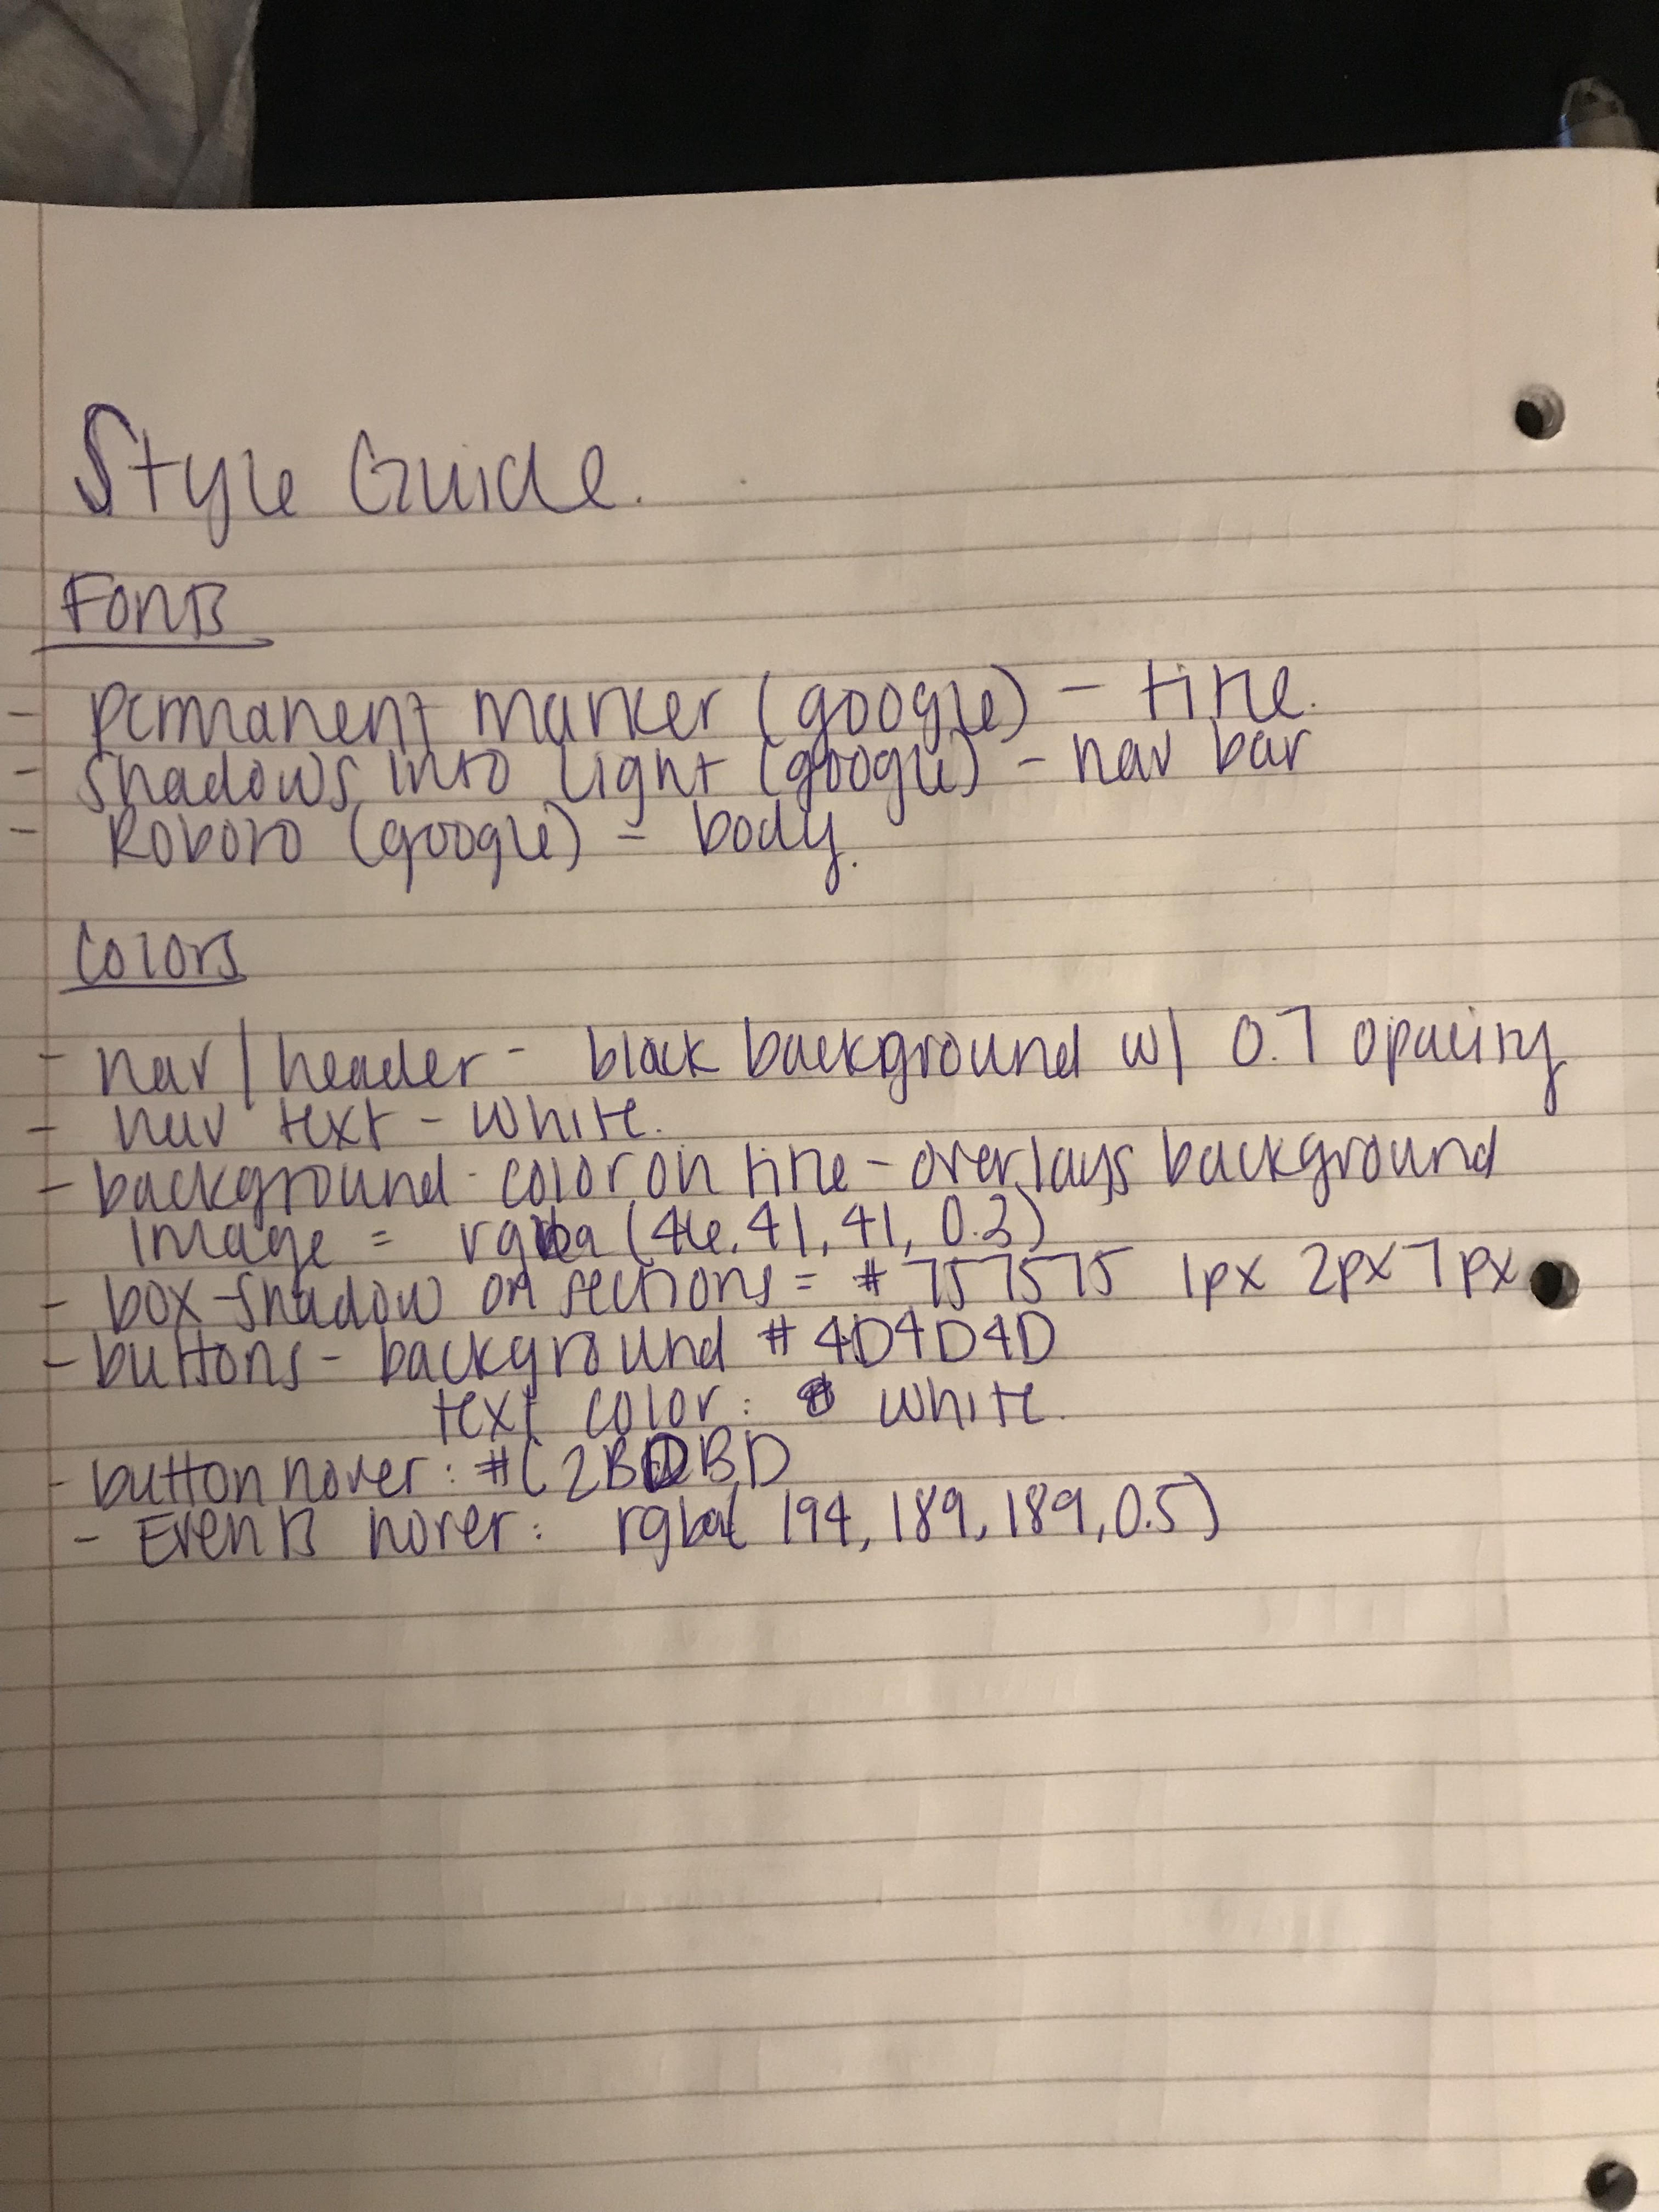 Style Guide.
Fonts
- permanent marker (google) - title.
- shadows into light (google) - nav bar
- Roboto (google) - body.
Colors
- nav/header - black background w/ 0.7 opacity
- nav text - white.
- background-color on title - overlays background
image = rgba (46, 41, 41, 0.3)
- box-shadow on sections = #757575 1px 2px 7px
- buttons - background #4D4D4D
text color: white.
- button hover: #C2BDBD
- Events hover: rgba( 194, 189, 189, 0.5)